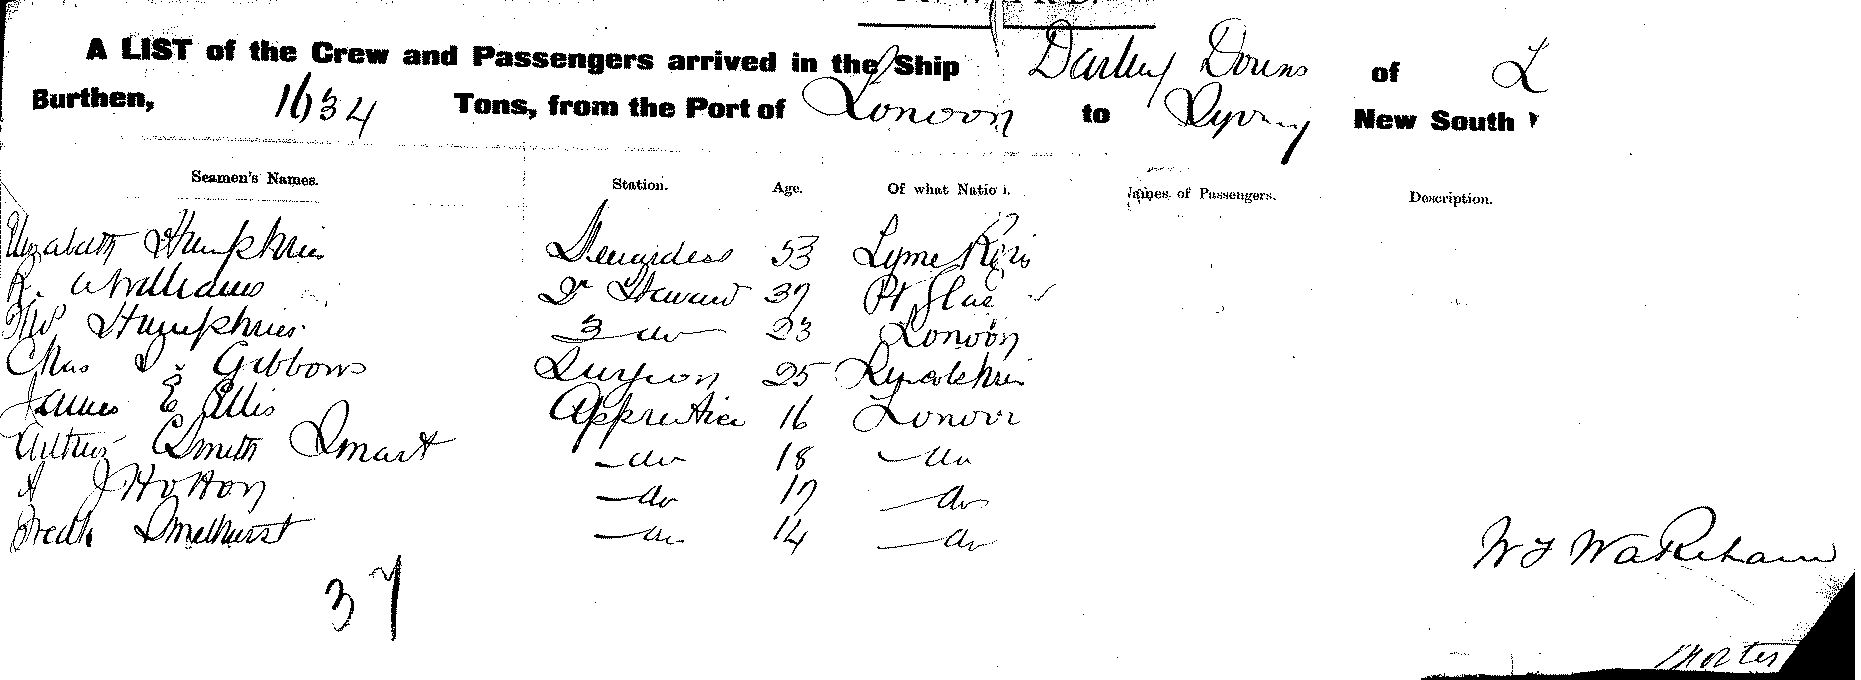 A LIST of the Crew and Passengers arrived in the Ship Darling Downs of L
Burthen, 1634 Tons, from the Port of London to Sydney New South
Seamen's Names. Station. Age. Of what Nation. Names of Passengers. Description.
Elizabeth Humphries Stewardess 53 Lyme Regis
R. Williams 2r Steward 37 Pt Glas
Humphries 3 do 23 London
Chas Gibbons Surgeon 25 Lincolnshire
James E Ellis Apprentice 16 London
Arthur Smith Smart do 18 do
A J Hotton do 17 do
Fredk Smelhurst do 14 do
37
W J Wakeham